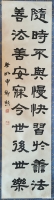 隨時不興慢快習於善法
善法善安寐今世後世樂